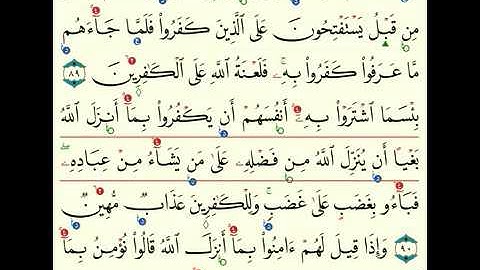 مِن قَبْلُ يَسْتَفْتِحُونَ عَلَى ٱلَّذِينَ كَفَرُوا۟ فَلَمَّا جَآءَهُم
مَّا عَرَفُوا۟ كَفَرُوا۟ بِهِۦ ۚ فَلَعْنَةُ ٱللَّهِ عَلَى ٱلْكَـٰفِرِينَ ٨٩
بِئْسَمَا ٱشْتَرَوْا۟ بِهِۦٓ أَنفُسَهُمْ أَن يَكْفُرُوا۟ بِمَآ أَنزَلَ ٱللَّهُ
بَغْيًا أَن يُنَزِّلَ ٱللَّهُ مِن فَضْلِهِۦ عَلَىٰ مَن يَشَآءُ مِنْ عِبَادِهِۦ ۖ
فَبَآءُو بِغَضَبٍ عَلَىٰ غَضَبٍ ۚ وَلِلْكَـٰفِرِينَ عَذَابٌ مُّهِينٌ ٩٠
وَإِذَا قِيلَ لَهُمْ ءَامِنُوا۟ بِمَآ أَنزَلَ ٱللَّهُ قَالُوا۟ نُؤْمِنُ بِمَآ